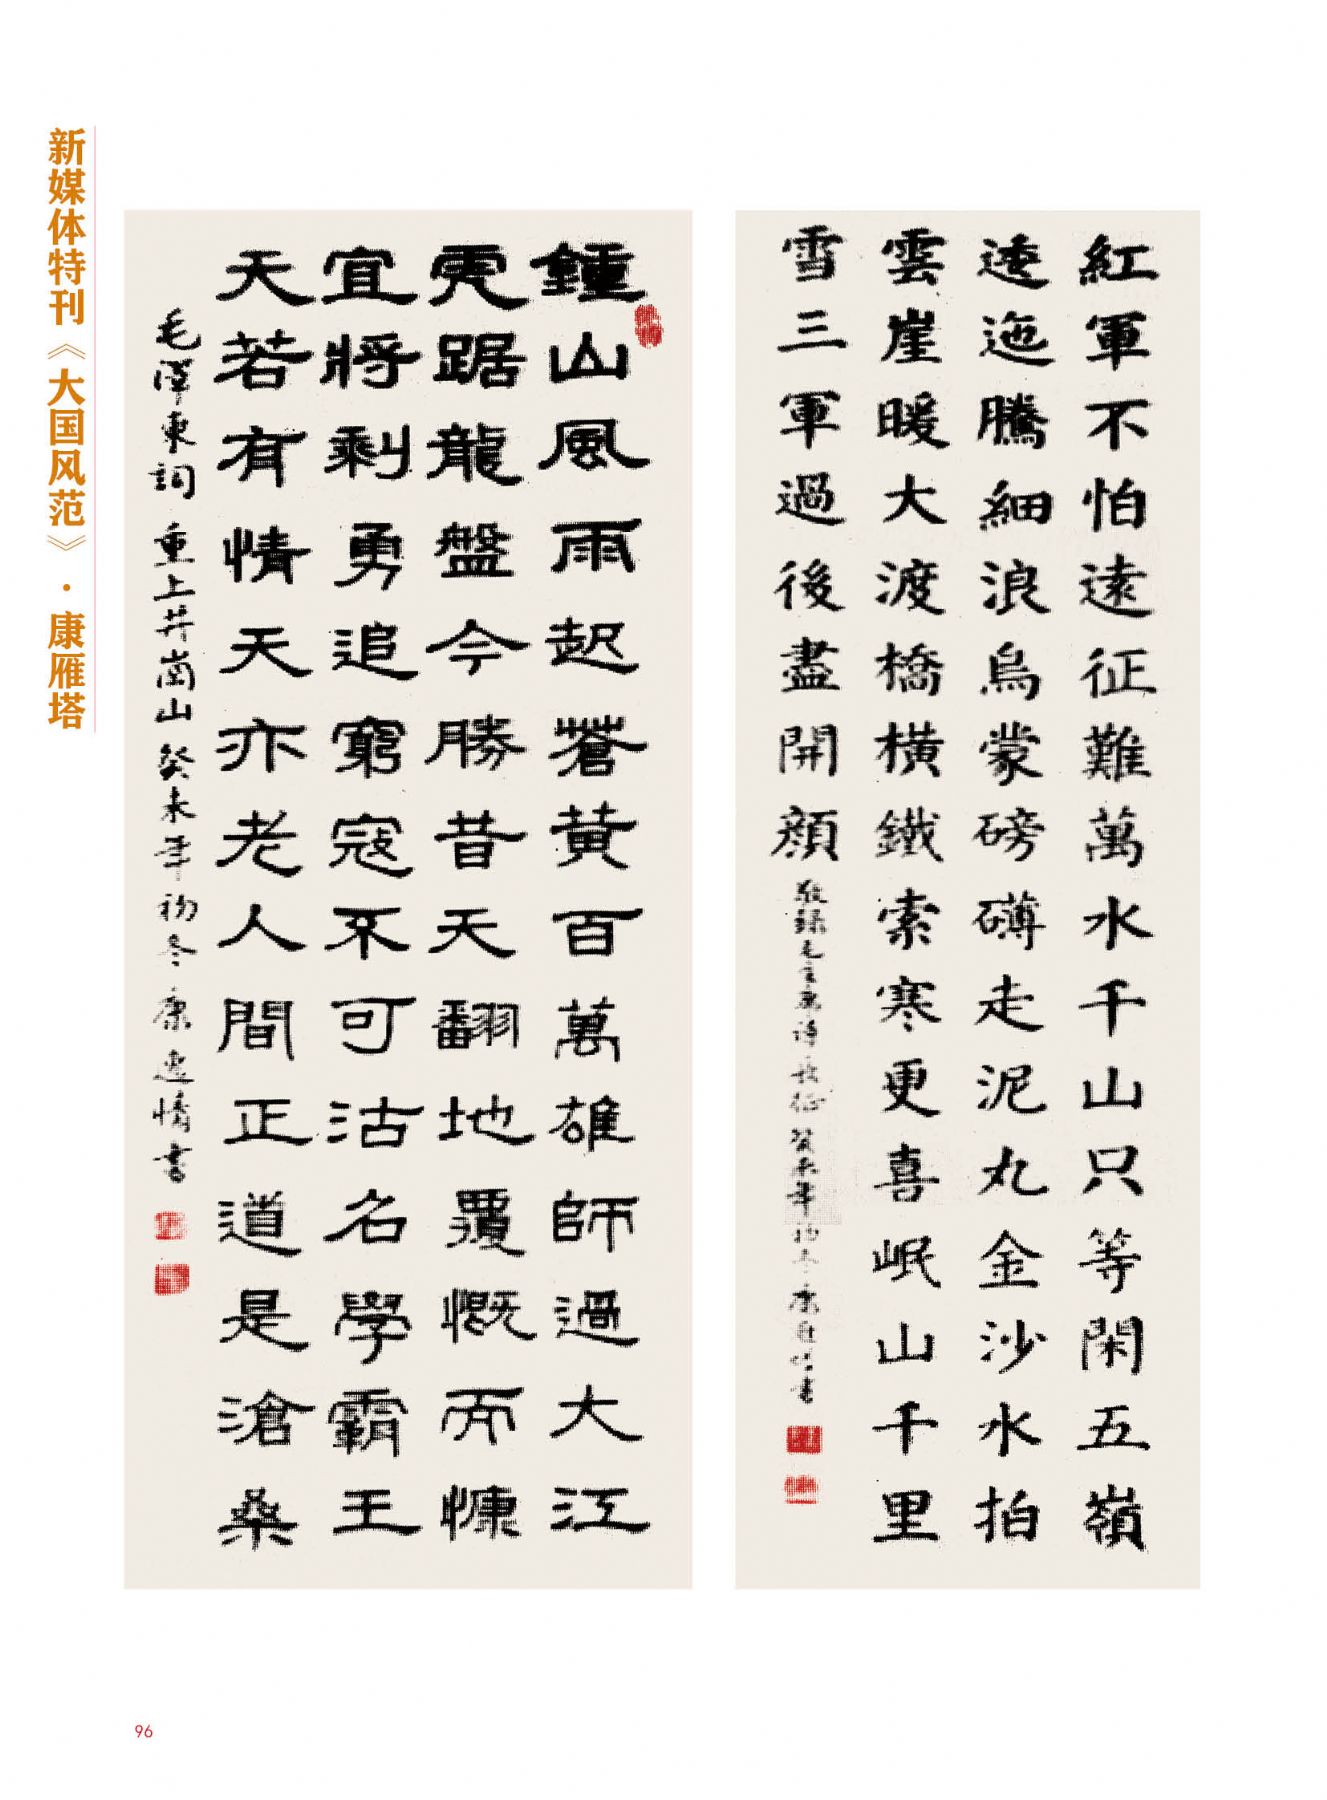 新媒体特刊《大国风范》·康雁塔
紅軍不怕遠征難萬水千山只等閑五嶺
逶迤騰細浪烏蒙磅礴走泥丸金沙水拍
雲崖暖大渡橋橫鐵索寒更喜岷山千里
雪三軍過後盡開顏
敬録毛主席詩長征 癸未年初冬康書
鍾山風雨起蒼黃百萬雄師過大江
虎踞龍盤今勝昔天翻地覆慨而慷
宜將剩勇追窮寇不可沽名學霸王
天若有情天亦老人間正道是滄桑
毛澤東詞 重上井崗山 癸未年初冬 康書
96